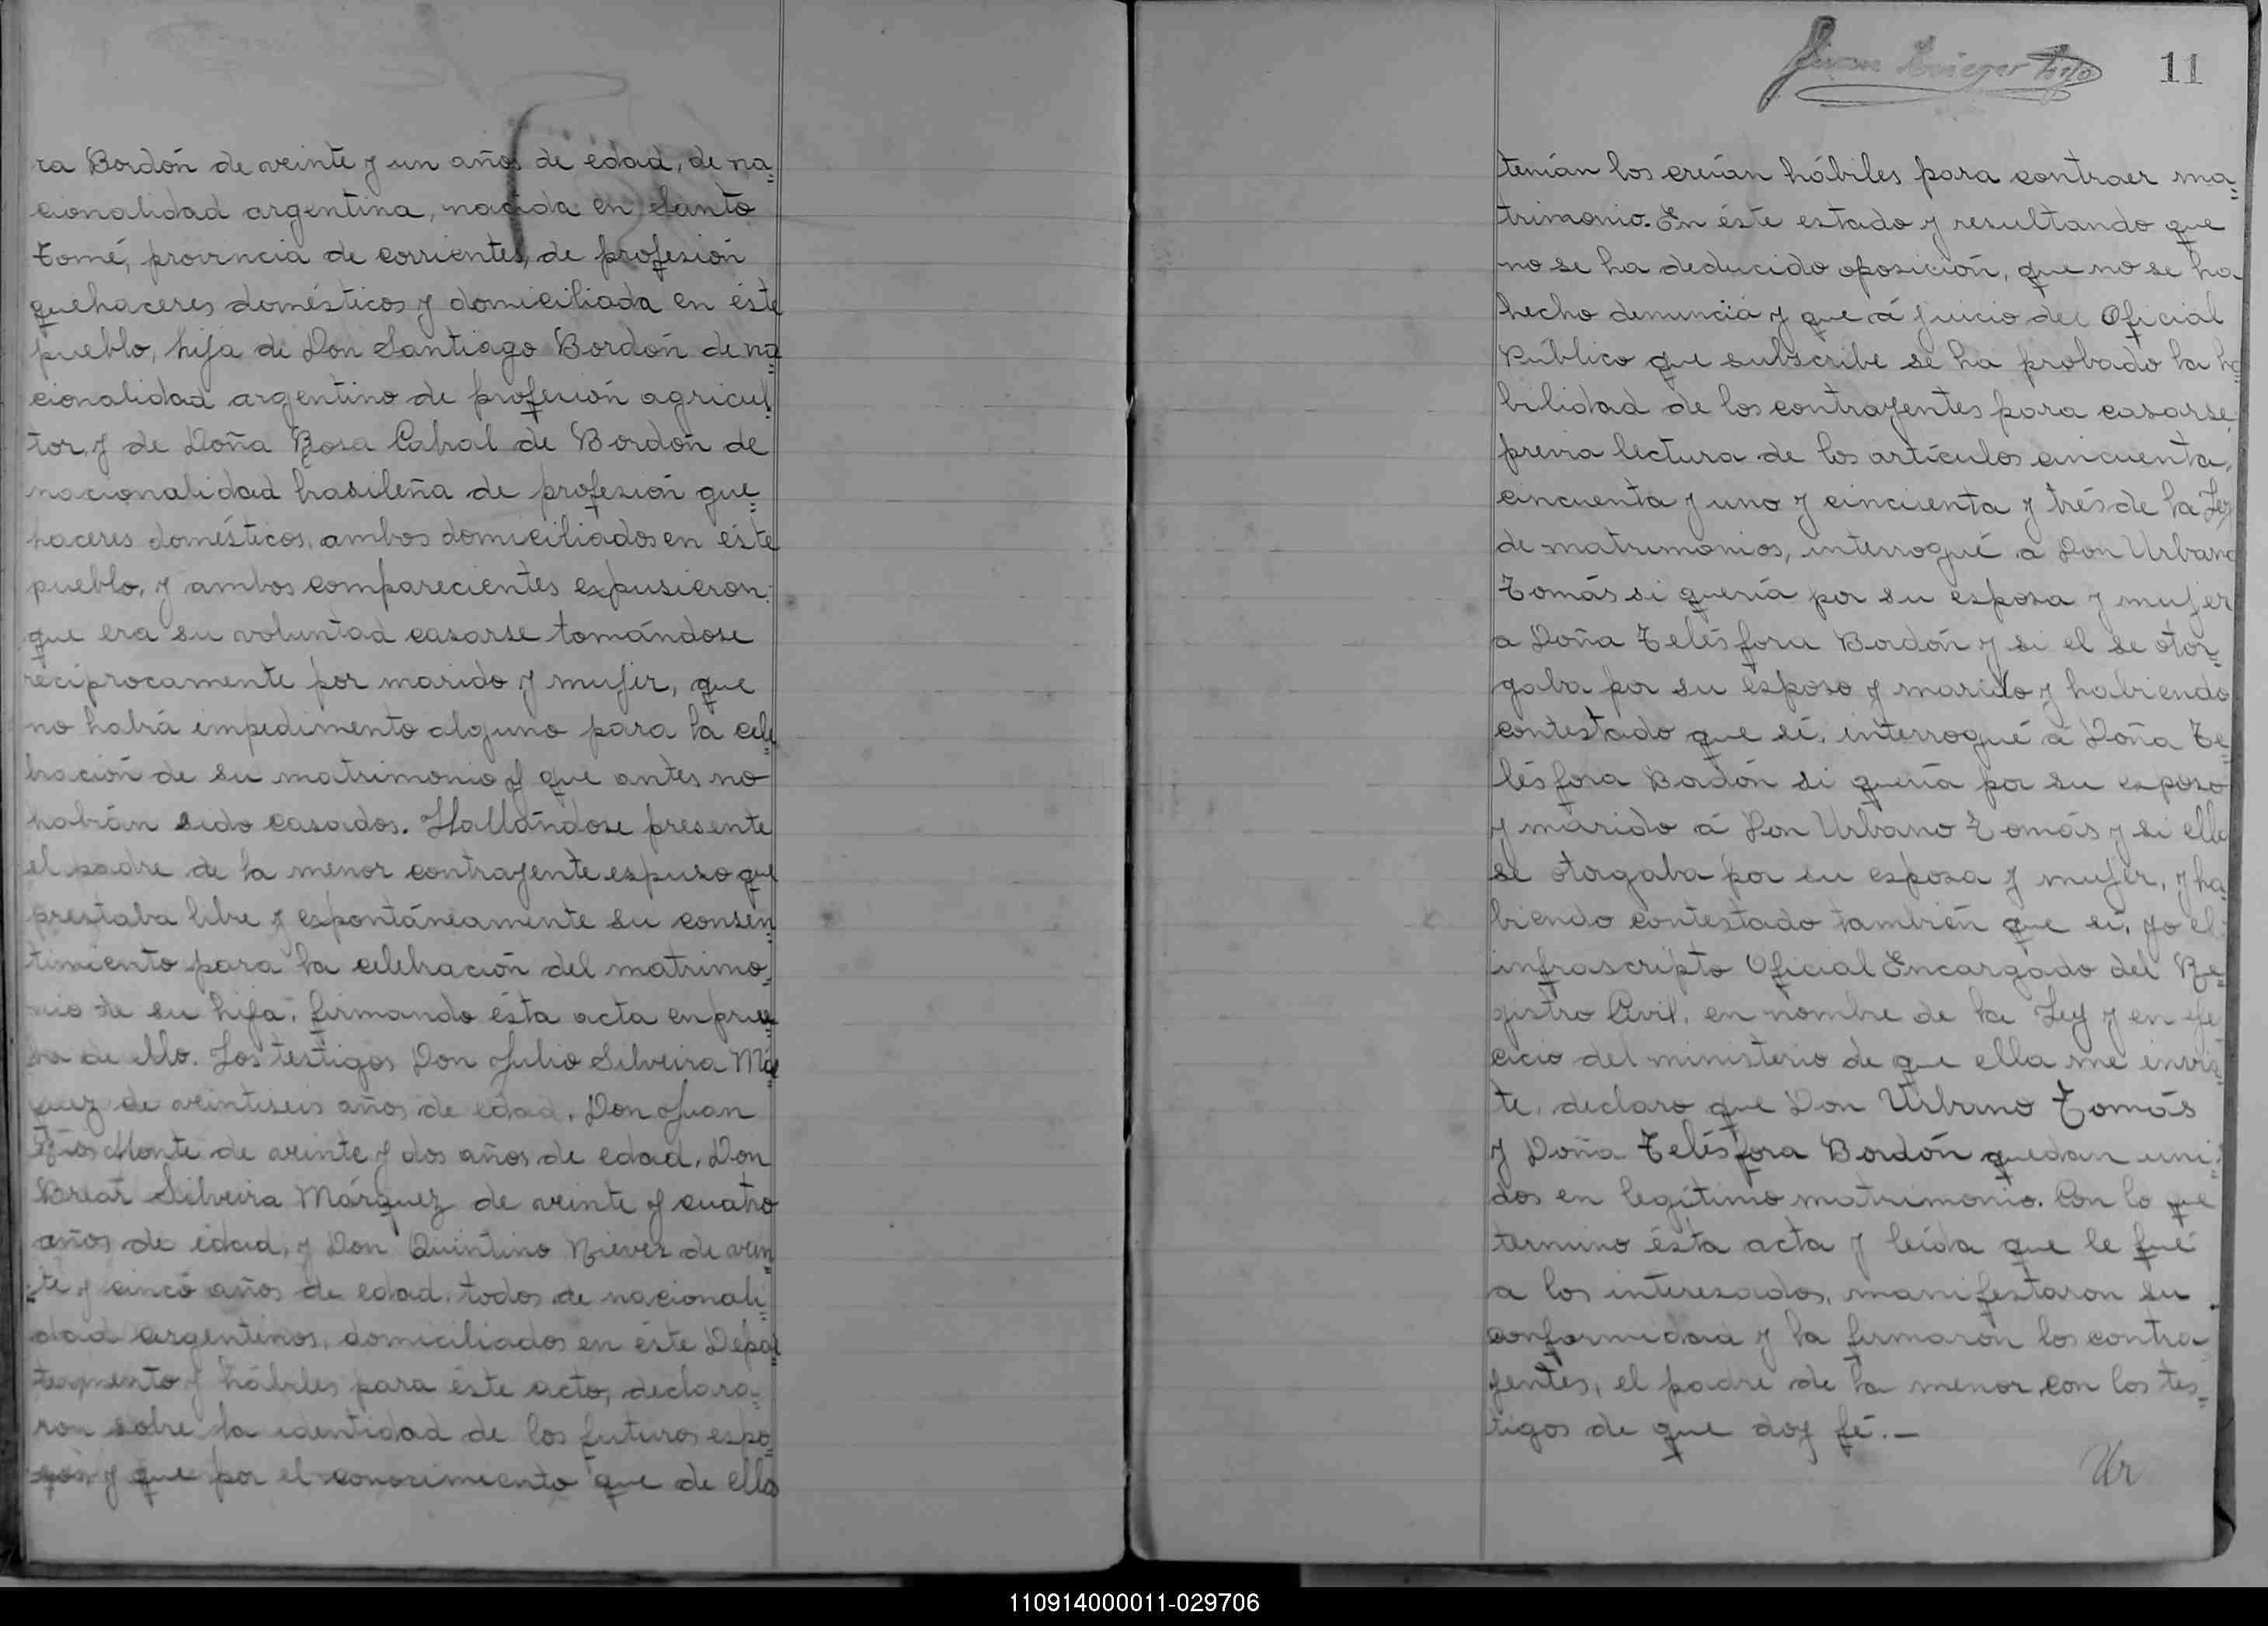 ra Bordón de veinte y un años de edad, de na=
cionalidad argentina, nacida en Santo
Tomé, provincia de corrientes, de profesión
quehaceres domésticos y domiciliada en éste
pueblo, hija de Don Santiago Bordón de na=
cionalidad argentino de profesión agricul=
tor, y de Doña Rosa Cabral de Bordón de
nacionalidad brasileña de profesión que=
haceres domésticos, ambos domiciliados en éste
pueblo, y ambos comparecientes expusieron:
que era su voluntad casarse tomándose
reciprocamente por marido y mujer, que
no habiá impedimento alguno para la cele=
bración de su matrimonio y que antes no
habián sido casados. Hallándose presente
el padre de la menor contrayente espuso que
prestaba libre y espontáneamente su consen=
timiento para la celebración del matrimo=
nio de su hija, firmando ésta acta en prue=
ba de ello. Los testigos Don Julio Silveira Már=
quez de veintiseis años de edad, Don Juan
Monte de veinte y dos años de edad, Don
Silveira Márquez de veinte y cuatro
años de edad, y Don Quintino Nievez de vein=
te y cinco años de edad, todos de nacionali=
dad argentinos, domiciliados en éste Depar=
tamento y hábiles para éste acto, declara=
ron sobre la identidad de los futuros espo=
sos y que por el conocimiento que de ellos
Juan
11
tenián los creián hábiles para contraer ma=
trimonio. En éste estado y resultando que
no se ha deducido oposición, que no se ha
hecho denuncia y que á juicio del Oficial
Público que subscribe se ha probado la ha=
bilidad de los contrayentes para casarse,
previa lectura de los artículos cincuenta,
cincuenta y uno y cincuenta y trés de la Ley
de matrimonios, interrogué a Don Urbano
Tomás si queria por su esposa y mujer
a Doña Telésfora Bordón y si el se otor=
gaba por su esposo y marido y habiendo
contestado que sí, interrogué á Doña Te=
lésfora Bordón si queria por su esposo
y marido á Don Urbano Tomás y si ella
se otorgaba por su esposa y mujer, y ha=
biendo contestado también que sí, yo el
infrascripto Oficial Encargado del Re=
gistro Civil, en nombre de la Ley y en eje
cicio del ministerio de que ella me invis=
te, declaro que Don Urbano Tomás
y Doña Telésfora Bordón quedan uni=
dos en legítimo matrimonio. Con lo que
termino ésta acta y leida que le fué
a los interesados, manifestaron su
conformidad y la firmaron los contra=
yentes, el padre de la menor, con los tes=
tigos de que doy fé.—
Ur
110914000011-029706